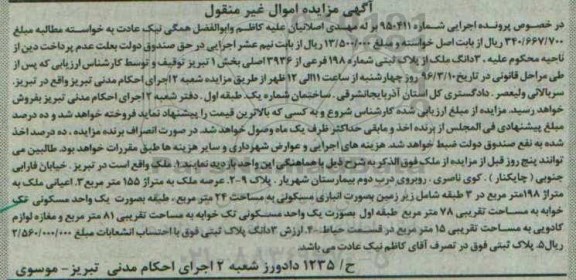 آگهی مزایده اموال غیر منقول
در خصوص پرونده اجرایی شماره ۹۵۰۴۱۱ برله مهدی اصلانیان علیه کاظم وابوالفضل همگی نیک عادت به خواسته مطالبه مبلغ
۳۴۰/۶۶۷/۷۰۰ ریال از بابت اصل خواسته و مبلغ ۱۳/۵۰۰/۰۰۰ ریال از بابت نیم عشر اجرایی در حق صندوق دولت بعلت عدم پرداخت دین از
ناحیه محکوم علیه، ۳دانگ ملک از پلاک ثبتی شماره ۱۹۸ فرعی از ۳۹۳۶ اصلی بخش ۱ تبریز توقیف و توسط کارشناس ارزیابی که پس از
طی مراحل قانونی در تاریخ ۹۶/۳/۱۰ روز چهارشنبه از ساعت ۱۱الی ۱۲ظهر از طریق مزایده شعبه ۲اجرای احکام مدنی تبریز واقع در تبریز،
سربالائی ولیعصر، دادگستری کل استان آذربایجانشرقی، ساختمان شماره یک، طبقه اول، دفتر شعبه ۲ اجرای احکام مدنی تبریز بفروش
خواهد رسید. مزایده از مبلغ ارزیابی شده کارشناس شروع و به کسی که بالاترین قیمت را پیشنهاد نماید فروخته خواهد شد و ده درصد
مبلغ پیشنهادی فی المجلس از برنده اخذ و مابقی حداکثر ظرف یک ماه وصول خواهد شد. در صورت انصراف برنده مزایده، ده درصد اخذ
شده به نفع صندوق دولت ضبط خواهد شد. هزینه های اجرایی و عوارض شهرداری و سایر هزینه ها طبق مقررات خواهد بود. طالبین می
توانند پنج روز قبل از مزایده از ملک فوق الذکر به شرح ذیل با هماهنگی این واحد بازدید نمایند:۱. ملک واقع است در تبریز، خیابان فارابی
جنوبی ( چایکنار ) ، کوی ناصری، روبروی درب دوم بیمارستان شهریار، پلاک ۹-۲. عرصه ملک به متراژ ۱۵۵ متر مربع ۳. اعیانی ملک به
متراژ ۱۹۸متر مربع در ۳ طبقه شامل زیر زمین بصورت انباری مسکونی به مساحت ۲۴ متر مربع، طبقه بصورت یک واحد مسکونی تک
خوابه به مساحت تقریبی ۷۸ متر مربع طبقه اول بصورت یک واحد مسکونی تک خوابه به مساحت تقریبی ۸۱ متر مربع و مغازه لوازم
کادویی به مساحت تقریبی ۱۵ متر مربع در قسمت حیاط ۴. ارزش ۳دانگ پلاک ثبتی فوق با احتساب انشعابات مبلغ ۲/۵۶۰/۰۰۰/۰۰۰
ریال ۵. پلاک ثبتی فوق در تصرف آقای کاظم نیک عادت می باشد.
ح/ ۱۲۳۵ دادورز شعبه ۲ اجرای احکام مدنی تبریز- موسوی